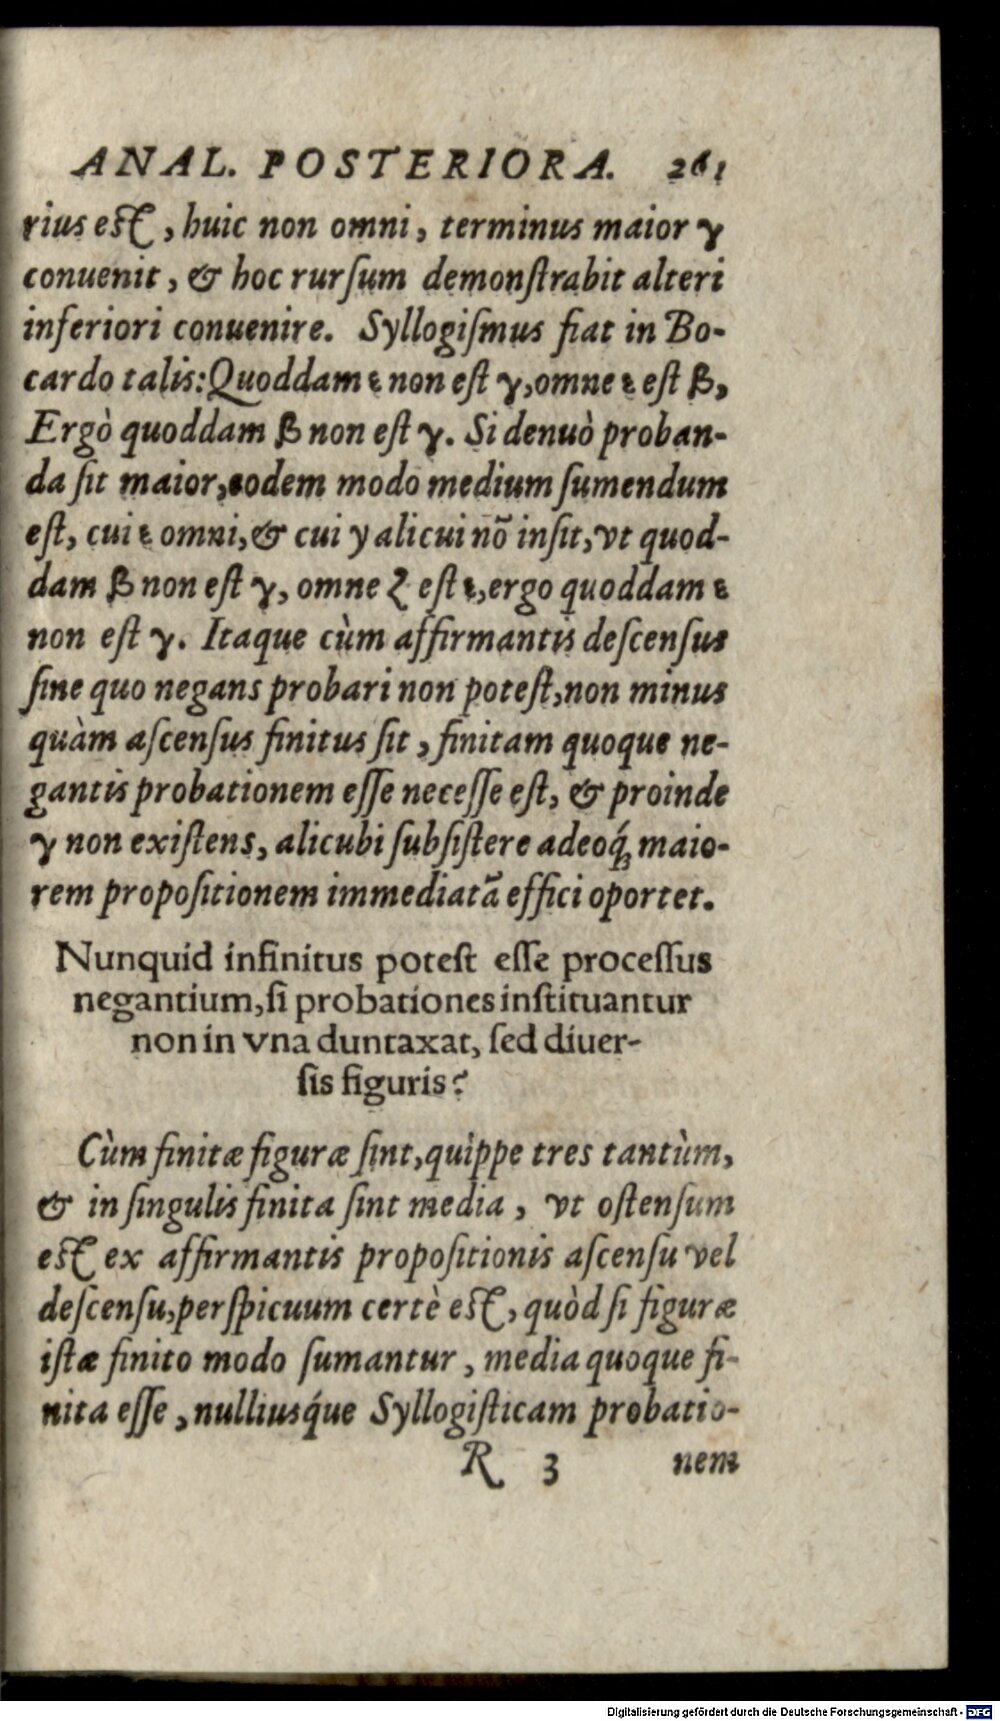 ANAL. POSTERIORA. 261
rius est, huic non omni, terminus maior γ
conuenit, & hoc rursum demonstrabit alteri
inferiori conuenire. Syllogismus fiat in Bo-
cardo talis: Quoddam ε non est γ, omne ε est β,
Ergò quoddam β non est γ. Si denuò proban-
da sit maior, eodem modo medium sumendum
est, cui ε omni, & cui γ alicui nõ insit, vt quod-
dam β non est γ, omne ζ est ε, ergo quoddam ε
non est γ. Itaque cùm affirmantis descensus
sine quo negans probari non potest, non minus
quàm ascensus finitus sit, finitam quoque ne-
gantis probationem esse necesse est, & proinde
γ non existens, alicubi subsistere adeoq́; maio-
rem propositionem immediatã effici oportet.
Nunquid infinitus potest esse processus
negantium, si probationes instituantur
non in vna duntaxat, sed diuer-
sis figuris?
Cùm finitæ figuræ sint, quippe tres tantùm,
& in singulis finita sint media, vt ostensum
est ex affirmantis propositionis ascensu vel
descensu, perspicuum certè est, quòd si figuræ
istæ finito modo sumantur, media quoque fi-
nita esse, nulliusq́ue Syllogisticam probatio-
R 3 nem
Digitalisierung gefördert durch die Deutsche Forschungsgemeinschaft - DFG